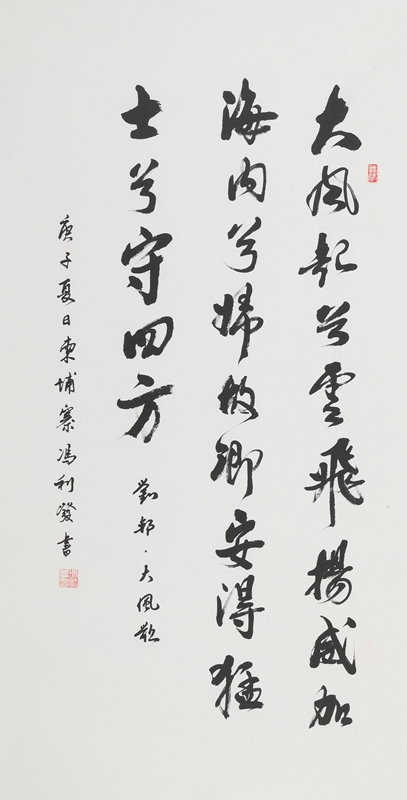 大風起兮雲飛揚威加
海內兮歸故鄉安得猛
士兮守四方
劉邦·大風歌
庚子夏日柬埔寨馮利發書